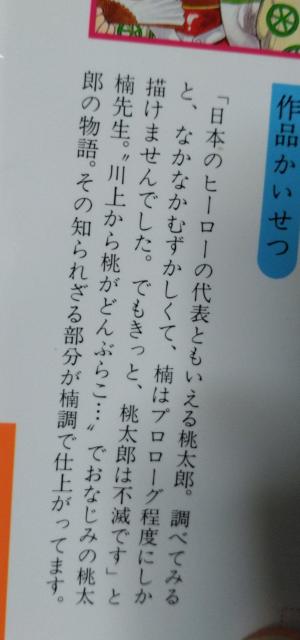 作品かいせつ
「日本のヒーローの代表ともいえる桃太郎。調べてみる
と、なかなかむずかしくて、楠はプロローグ程度にしか
描けませんでした。でもきっと、桃太郎は不滅です」と
楠先生。〝川上から桃がどんぶらこ…〟でおなじみの桃太
郎の物語。その知られざる部分が楠調で仕上がってます。